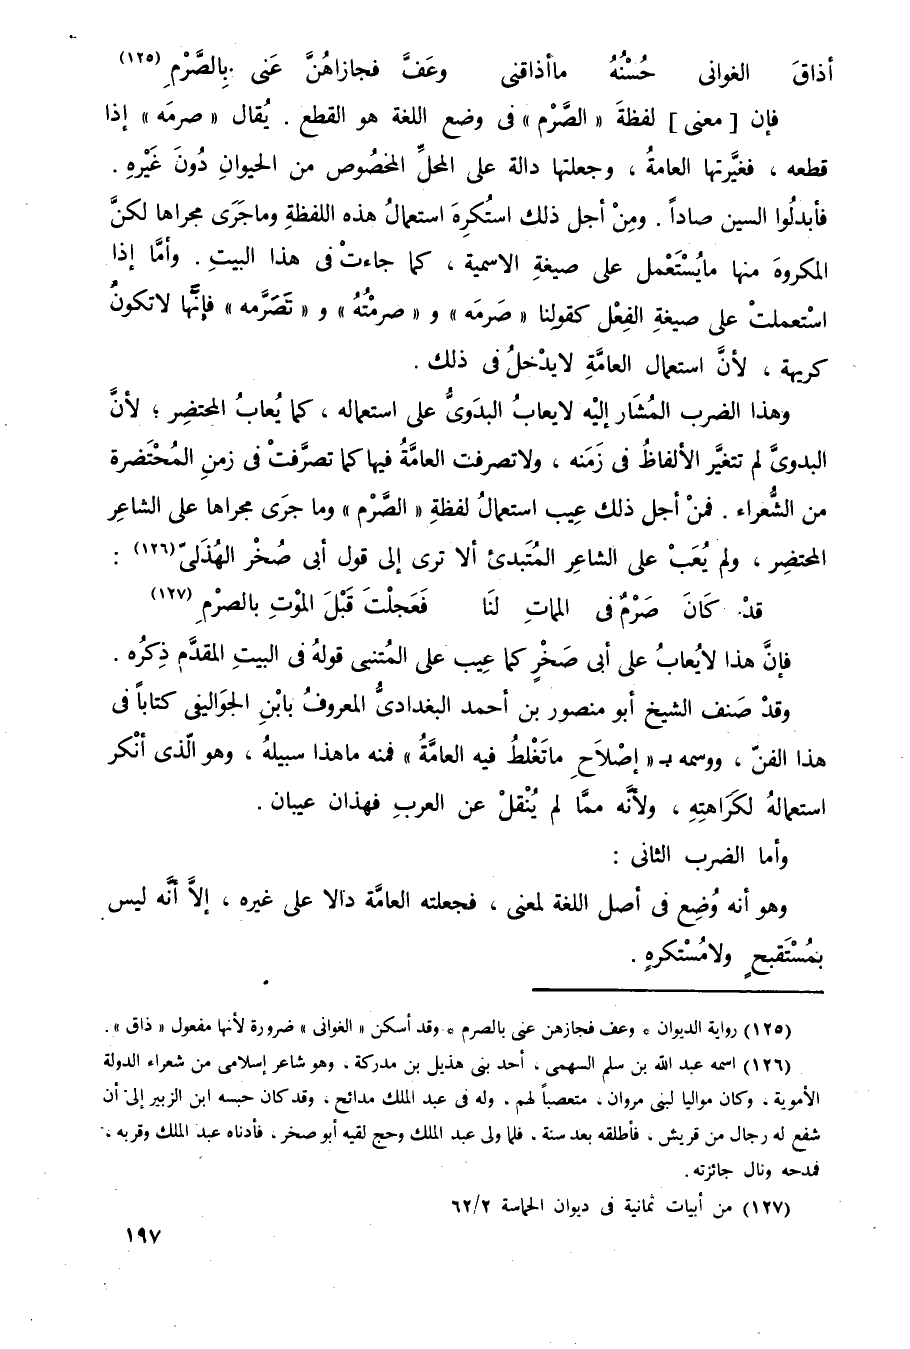 أذاقَ الغوانى حُسْنُهُ ماأذاقنى وعَفَّ فجازاهُنَّ عَنى بِالصَّرْمِ (١٢٥)
فإن [ معنى ] لفظةَ « الصَّرْم » فى وضع اللغة هو القطع . يُقال « صرمَه » إذا
قطعه ، فغيَّرتها العامةُ ، وجعلتها دالة على المحلِّ المخصُوص من الحيوانِ دُونَ غَيْرِهِ .
فأبدلُوا السين صاداً . ومِنْ أجل ذلك استُكرِهَ استعمالُ هذه اللفظةِ وماجَرَى مجراها لكنَّ
المكروهَ منها مايُسْتَعْمل على صيغةِ الاسمية ، كما جاءتْ فى هذا البيتِ . وأمَّا إذا
اسْتعملتْ على صيغةِ الفِعْل كقولنا « صَرمَه » و « صرمْتُهُ » و « تَصَرَّمه » فإنَّها لاتكونُ
كريهة ، لأنَّ استعمال العامَّةِ لايدْخلُ فى ذلك .
وهذا الضرب المُشَار إليْه لايعابُ البدَوىُّ على استعماله ، كما يُعابُ المحتضِر ؛ لأنَّ
البدوىَّ لم تتغيَّر الألفاظُ فى زَمَنه ، ولاتصرفت العامَّةُ فيها كما تصرَّفتْ فى زمنِ المُحْتَضرة
من الشُّعراء . فمنْ أجل ذلك عِيب استعمالُ لفظةِ « الصَّرْم » وما جرَى مجراها على الشاعرِ
المحتضِر ، ولم يُعَبْ على الشاعرِ المُتَبدئ ألا ترى إلى قول أبى صُخْر الهُذَلىّ (١٢٦) :
قدْ كَانَ صَرْمٌ فى المماتِ لنَا فَعَجلْتَ قَبْلَ الموْتِ بالصرْمِ (١٢٧)
فإنَّ هذا لايُعابُ على أبى صَخْرٍ كما عِيب على المُتنبى قولهُ فى البيتِ المقدَّم ذِكرُه .
وقدْ صَنف الشيخ أبو منصور بن أحمد البغدادىُّ المعروفُ بابْنِ الجَواليفى كتاباً فى
هذا الفنّ ، ووسمه بـ « إصْلاَحِ ماتَغْلطُ فيه العامَّةُ » فمنه ماهذا سبيلهُ ، وهو الّذى أنْكر
استعمالهُ لكَرَاهتِهِ ، ولأنَّه ممَّا لم يُنْقلْ عن العربِ فهذان عيبان .
وأما الضرب الثانى :
وهو أنه وُضِع فى أصل اللغة لمعنى ، فجعلته العامَّة دالا على غيره ، إلاَّ أنَّه ليس
بمُسْتَقبحٍ ولامُسْتكرهٍ .
(١٢٥) رواية الديوان * وعف فجازهن عنى بالصرم * وقد أسكن « الغوانى » ضرورة لأنها مفعول « ذاق » .
(١٢٦) اسمه عبد الله بن سلم السهمى ، أحد بنى هذيل بن مدركة ، وهو شاعر إسلامى من شعراء الدولة
الأموية ، وكان مواليا لبنى مروان ، متعصباً لهم . وله فى عبد الملك مدائح ، وقد كان حبسه ابن الزبير إلى أن
شفع له رجال من قريش ، فأطلقه بعد سنة . فلما ولى عبد الملك وحج لقيه أبو صخر ، فأدناه عبد الملك وقربه ،
فمدحه ونال جائزته .
(١٢٧) من أبيات ثمانية فى ديوان الحماسة ٦٢/٢
١٩٧